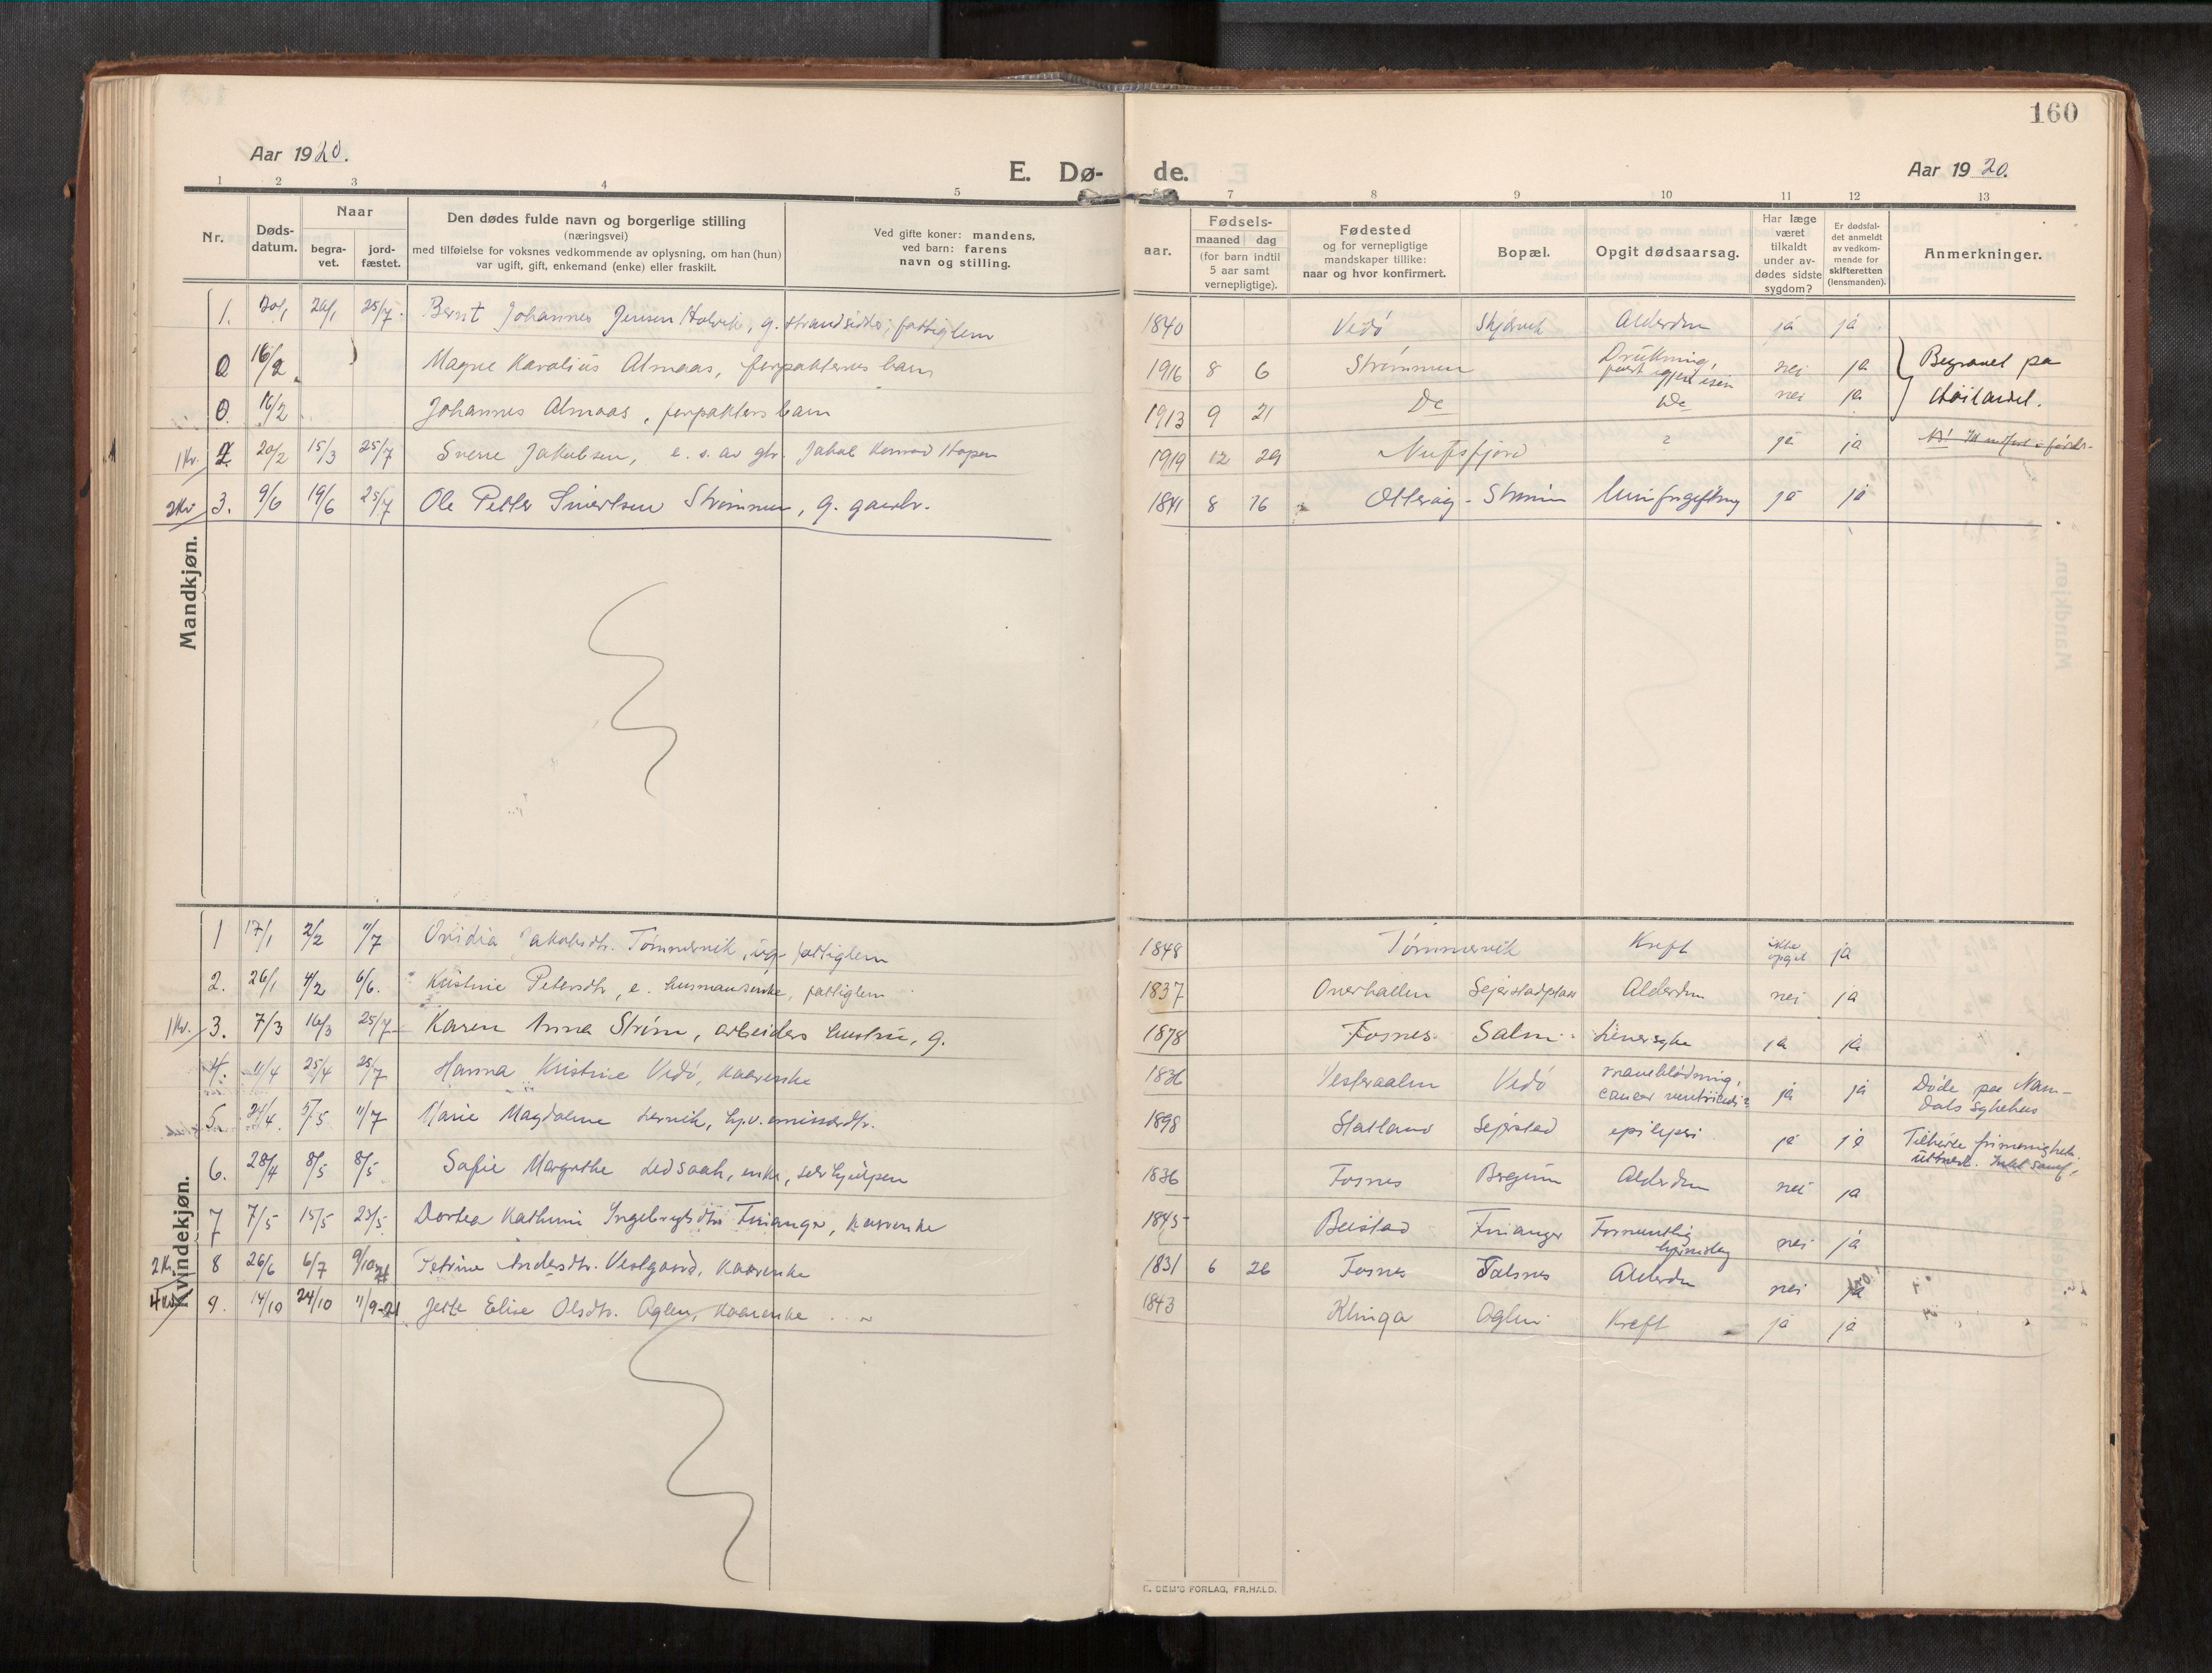 160
Aar 1920.
E. Dø- de.
Aar 1920.
1 2 3 4 5 7 8 9 10 11 12 13
Nr.
Døds-datum.
Naar
begra-vet.
jord-fæstet.
Den dødes fulde navn og borgerlige stilling
(næringsvei)
med tilføielse for voksnes vedkommende av oplysning, om han (hun)
var ugift, gift, enkemand (enke) eller fraskilt.
Ved gifte koner: mandens,
ved barn: farens
navn og stilling.
aar.
Fødsels-
maaned dag
(for barn indtil
5 aar samt
vernepligtige).
Fødested
og for vernepligtige
mandskaper tillike:
naar og hvor konfirmert.
Bopæl.
Opgit dødsaarsag.
Har læge
været
tilkaldt
under av-
dødes sidste
sygdom?
Er dødsfal-
det anmeldt
av vedkom-
mende for
skifteretten
(lensmanden).
Anmerkninger.
Mandkjøn.
1. 20/1 25/7 Bernt Johannes Jensen, g. strandsidder, fattiglem 1840 Vedö Skjörvik Alderdom ja ja
0 16/2 Magne Karolius Almaas, forpakters barn 1916 8 6 Strömmen Drukning, nei ja Begravet paa
0. 16/2 Johannes Almaas, forpakters barn 1913 9 21 Do Do nei ja Höilandet.
1 Kv. 2. 20/2 15/3 25/7 Sverre Jakobsen, e. s. av gbr. Jakob Konrad Hopen 1919 12 29 Nufsfjord ? ja ja
2 Kv 3. 9/6 19/6 25/7 Ole Petter Sivertsen Strömmen, g. gaardbr. 1841 8 16 Otteröy - Strömm ja ja
Kvindekjøn.
1 17/1 2/2 11/7 Ovidia Jakobsdtr. Tömmervik, ug. fattiglem 1848 Tömmervik Kreft ikke opgit ja
2. 26/1 4/2 6/6. Kristine Petersdtr, e. husmansenke, fattiglem 1837 Overhallen Sejerstadplass Alderdom nei ja
1 Kv. 3. 7/3 16/3 25/7 Karen Anna Ström, arbeiders hustru, g. 1878 Fosnes Salm. Leversyke ja ja
4. 11/4 25/4 25/7 Hanna Kristine Vedö, kaarenke 1836 Vesteraalen Vedö maveblödning, cancer ventriculi? ja ja Döde paa Nam-
dals sykehus
5. 24/4 5/5 11/7 Marie Magdalene Lervik, 1898 Statland Sejerstad epilepsi ja ja Tilhörte frimenighet.
6. 28/4 8/5 8/5 Sofie Margrethe Ledsaak, enke, selvhjulpen 1836 Fosnes Bregum Alderdom nei ja
7 7/5 15/5 23/5 Dortea Kathrine Ingebrigtsdtr Finanger, kaarenke 1845 Beistad Finanger Formentlig hjerneslag nei ja
2 Kv. 8 26/6 6/7 9/10 21 Petrine Andersdtr. Vestgaard, kaarenke 1831 6 26 Fosnes Salsnes Alderdom nei ja
4 Kv 9. 14/10 24/10 11/9-21 Jette Elise Olsdtr. Aglen, kaarenke 1843 Klinga Aglen Kreft ja ja
E. SEM'S FORLAG, FR.HALD.